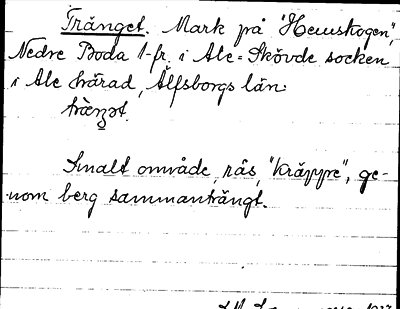 Trånget. Mark på "Hemskogen",
Nedre Boda 1-fr. i Ale-Skövde socken
i Ale härad, Älfsborgs län.
Smalt område, rås, "kräppe", ge-
nom berg sammanträngt.